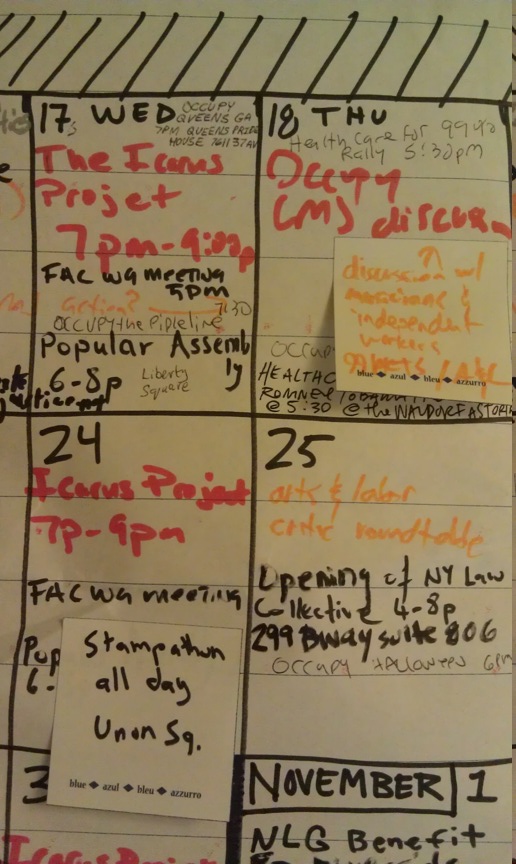 17 WED OCCUPY
QUEENS GA
7PM QUEENS PRIDE
HOUSE 7611 37AV
The Icarus
Projet
7pm-9:00p
FAC WG MEETING
5pm
action? 7:30
OCCUPY the Pipleline
Popular Assemb
ly
6-8p Liberty
Square
18 THU
Health Care for 99%
Rally 5:30pm
Occupy
CMJ discussn
discussion w/
musicians &
independent
workers
blue ◆ azul ◆ bleu ◆ azzurro
OCCUP
HEALTHC
ROMNEY
@ 5:30 @ the WALDORF ASTORI
24
Icarus Project
7p-9pm
FAC WG meeting
Pop
6-
Stampathon
all day
Union Sq.
blue ◆ azul ◆ bleu ◆ azzurro
25
arts & labor
critic roundtable
Opening of NY Law
Collective 4-8p
299 Bway suite 806
OCCUPY HALLOWEEN 6PM
3
Icarus Project
NOVEMBER 1
NLG Benefit